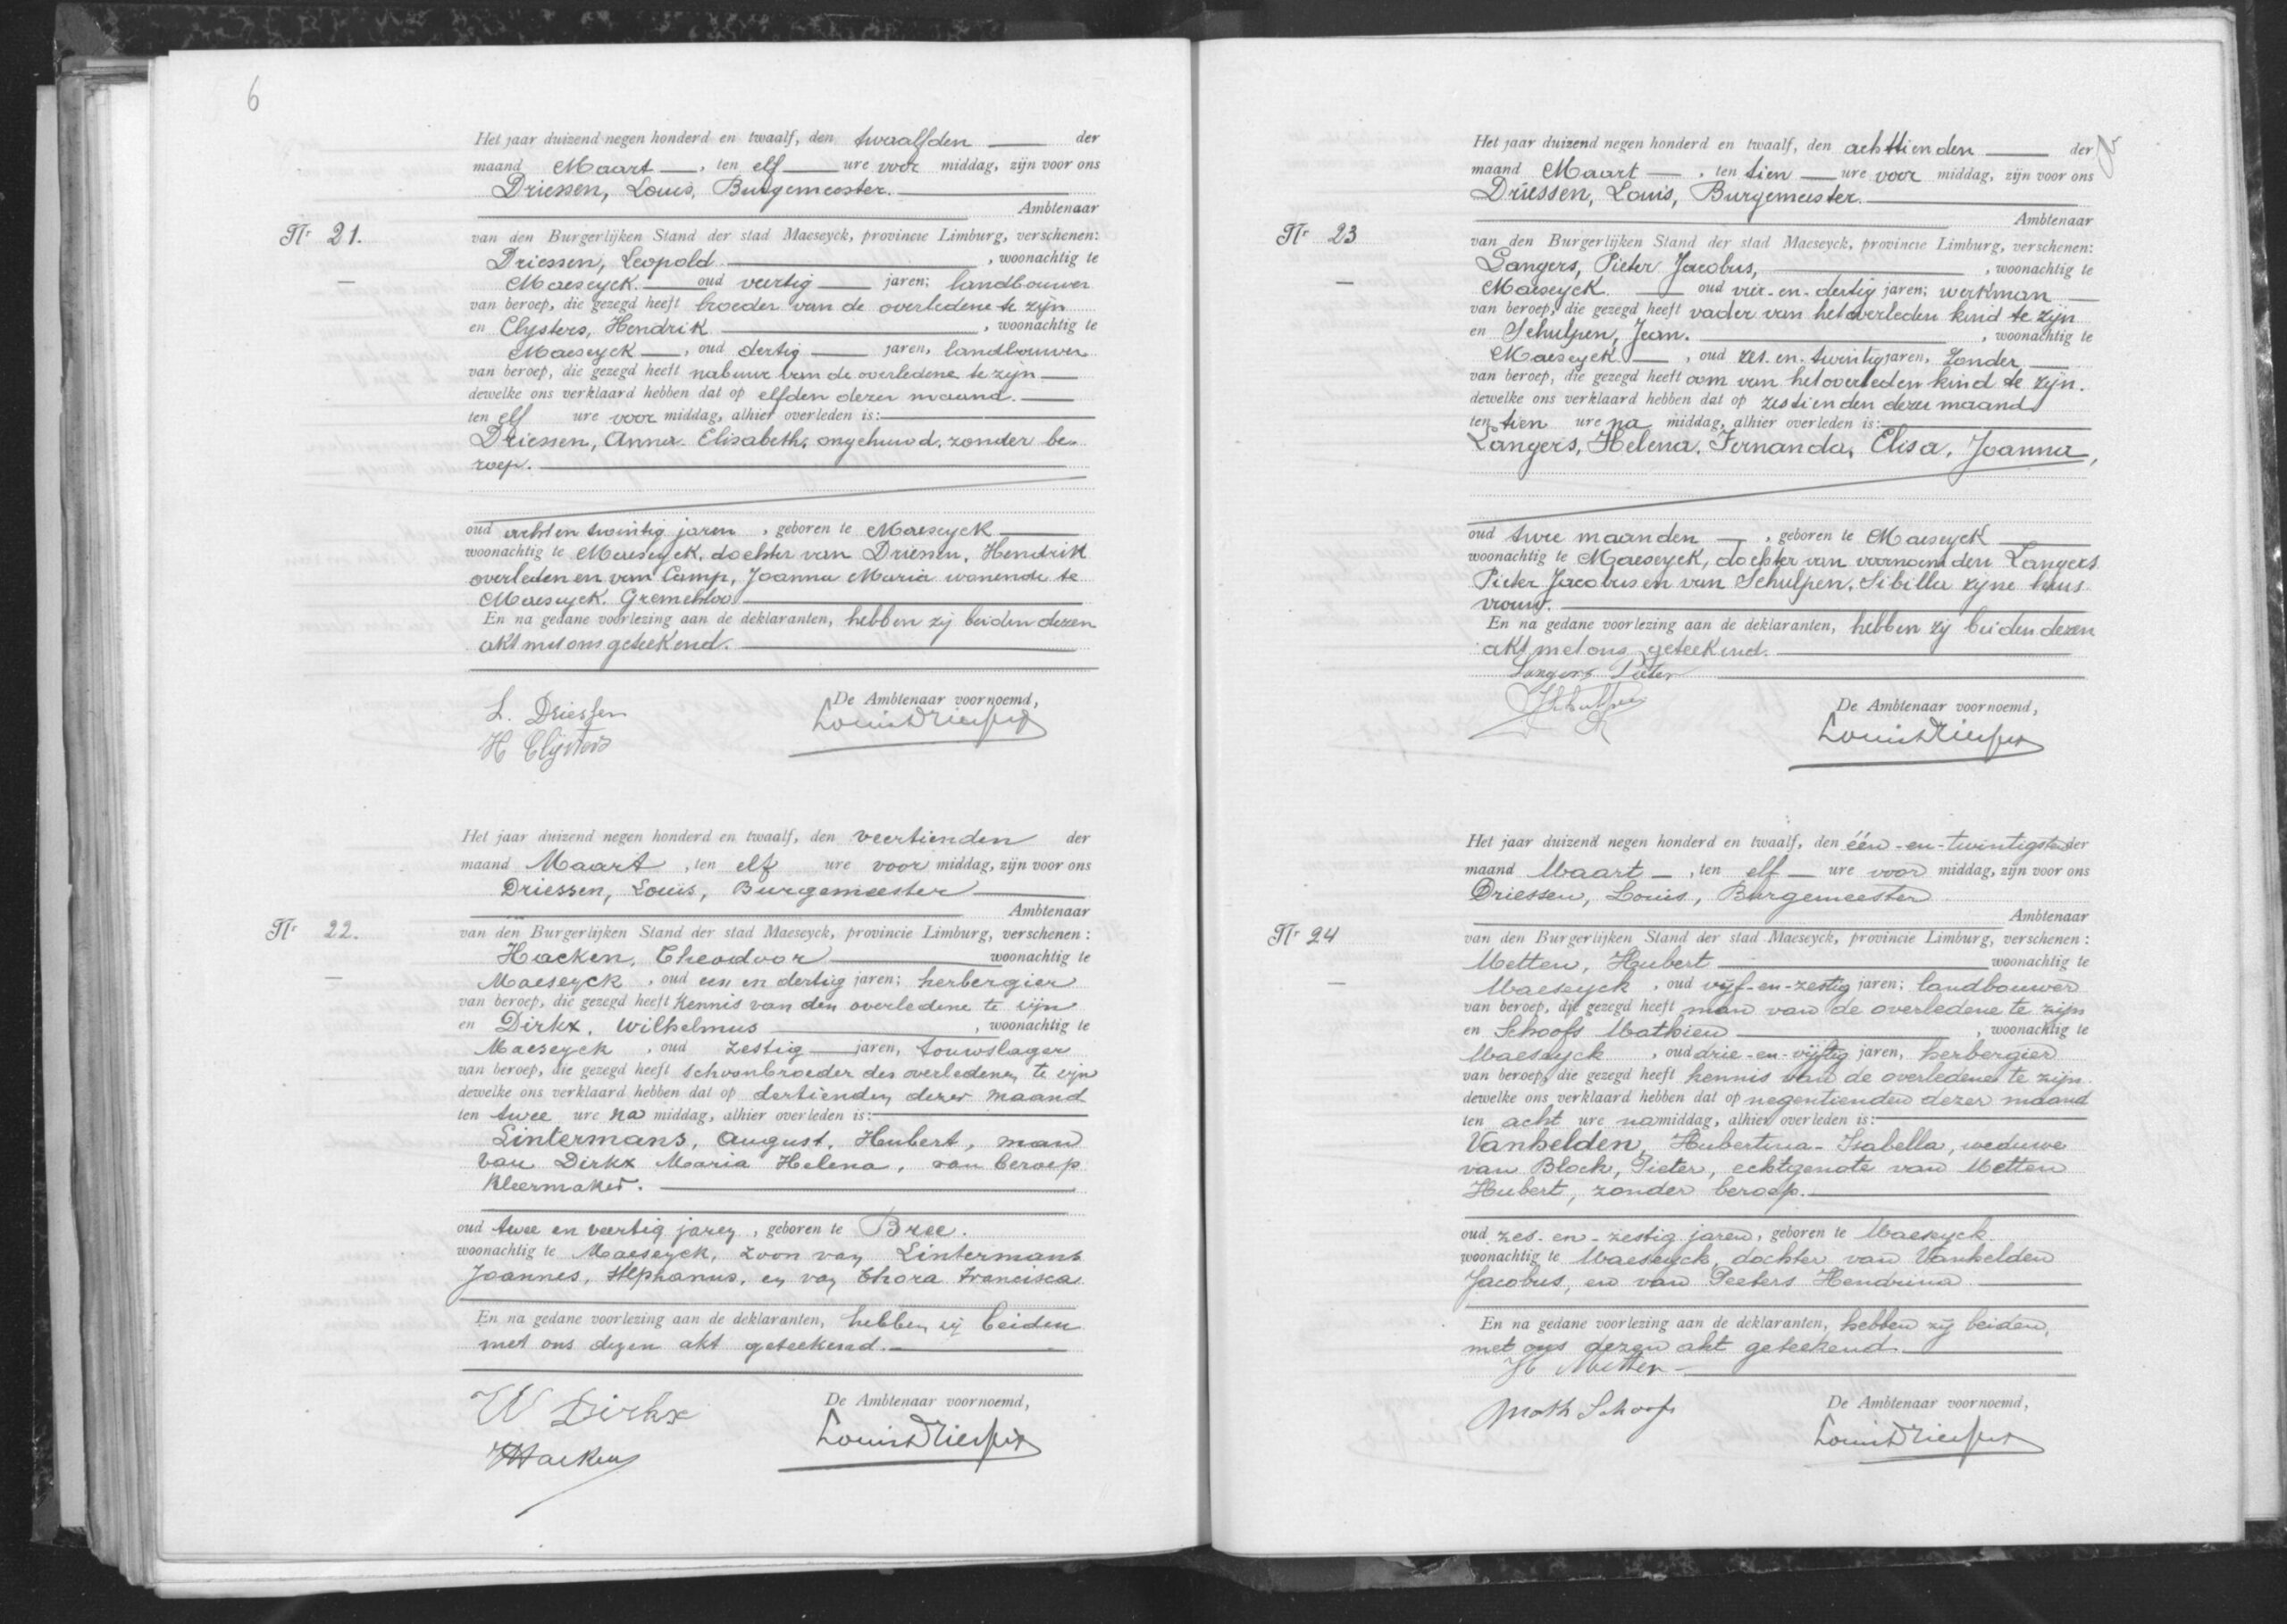 6
Het jaar duizend negen honderd en twaalf, den twaalfden der
maand Maart, ten elf ure voor middag, zijn voor ons
Driessen, Louis, Burgemeester.
Ambtenaar
Nr 21.
van den Burgerlijken Stand der stad Maeseyck, provincie Limburg, verschenen:
Driessen, Leopold, woonachtig te
Maeseyck. oud veertig jaren; landbouwer
van beroep, die gezegd heeft broeder van de overledene te zijn
en Clysters, Hendrik, woonachtig te
Maeseyck, oud dertig jaren, landbouwer
van beroep, die gezegd heeft nabuur van de overledene te zijn
dewelke ons verklaard hebben dat op elfden dezer maand.
ten elf ure voor middag, alhier overleden is:
Driessen, Anna Elisabeth, ongehuwd, zonder be-
roep.
oud acht en twintig jaren, geboren te Maeseyck
woonachtig te Maeseyck, dochter van Driessen, Hendrik
overleden en van Camp, Joanna Maria wonende te
Maeseyck.
En na gedane voorlezing aan de deklaranten, hebben zij beiden dezen
akt met ons geteekend.
De Ambtenaar voornoemd,
L. Driessen
Louis Driessen
H Clijsters
Het jaar duizend negen honderd en twaalf, den veertienden der
maand Maart, ten elf ure voor middag, zijn voor ons
Driessen, Louis, Burgemeester
Ambtenaar
Nr 22.
van den Burgerlijken Stand der stad Maeseyck, provincie Limburg, verschenen:
Haeken, Theodoor woonachtig te
Maeseyck, oud een en dertig jaren; herbergier
van beroep, die gezegd heeft Kennis van den overledene te zijn
en Dirkx, Wilhelmus, woonachtig te
Maeseyck, oud zestig jaren, touwslager
van beroep, die gezegd heeft schoonbroeder des overledenen te zijn
dewelke ons verklaard hebben dat op dertienden dezer maand
ten twee ure na middag, alhier overleden is:
Lintermans, August, Hubert, man
van Dirkx Maria Helena, van beroep
Kleermaker.
oud twee en veertig jaren, geboren te Bree.
woonachtig te Maeseyck, zoon van Lintermans
Joannes, Stephanus, en van Francisca
En na gedane voorlezing aan de deklaranten, hebben zij beiden
met ons dezen akt geteekend.
De Ambtenaar voornoemd,
W Dirkx
Louis Driessen
Haeken
Het jaar duizend negen honderd en twaalf, den achttienden der
maand Maart, ten tien ure voor middag, zijn voor ons
Driessen, Louis, Burgemeester.
Ambtenaar
Nr 23
van den Burgerlijken Stand der stad Maeseyck, provincie Limburg, verschenen:
Langers, Pieter Jacobus, woonachtig te
Maeseyck. oud vier-en-dertig jaren; werkman
van beroep, die gezegd heeft vader van het overleden kind te zijn
en Schulpen, Jean., woonachtig te
Maeseyck, oud zes-en-twintig jaren, Zonder
van beroep, die gezegd heeft oom van het overleden kind te zijn.
dewelke ons verklaard hebben dat op zestienden dezer maand
ten tien ure na middag, alhier overleden is:
Langers, Helena, Fernanda, Elisa, Joanna,
oud twee maanden, geboren te Maeseyck
woonachtig te Maeseyck, dochter van voornoemden Langers
Pieter Jacobus en van Schulpen, Sibilla zyne huis
vrouw.
En na gedane voorlezing aan de deklaranten, hebben zij beiden dezen
akt met ons geteekend.
Langers Pieter
De Ambtenaar voornoemd,
Louis Driessen
Het jaar duizend negen honderd en twaalf, den één-en-twintigsten der
maand Maart, ten elf ure voor middag, zijn voor ons
Driessen, Louis, Burgemeester
Ambtenaar
Nr 24
van den Burgerlijken Stand der stad Maeseyck, provincie Limburg, verschenen:
Metten, Hubert woonachtig te
Maeseyck, oud vijf-en-zestig jaren; landbouwer
van beroep, die gezegd heeft man van de overledene te zijn
en Schoofs Mathieu, woonachtig te
Maeseyck, oud drie-en-vijftig jaren, herbergier
van beroep, die gezegd heeft kennis van de overledene te zijn.
dewelke ons verklaard hebben dat op negentienden dezer maand
ten acht ure na middag, alhier overleden is:
Vanhelden, Hubertina-Isabella, weduwe
van Block, Pieter, echtgenote van Metten
Hubert, zonder beroep.
oud zes-en-zestig jaren, geboren te Maeseyck
woonachtig te Maeseyck, dochter van Vanhelden
Jacobus, en van Peeters Hendrina
En na gedane voorlezing aan de deklaranten, hebben zij beiden,
met ons dezen akt geteekend.
H Metten
De Ambtenaar voornoemd,
Math Schoofs
Louis Driessen